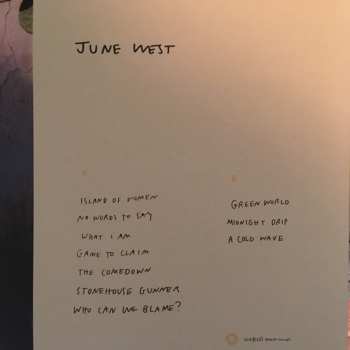 JUNE WEST
ISLAND OF WOMEN
NO WORDS TO SAY
WHAT I AM
GAME TO CLAIM
THE COMEDOWN
STONEHOUSE GUNNER
WHO CAN WE BLAME?
GREEN WORLD
MIDNIGHT DRIP
A COLD WAVE